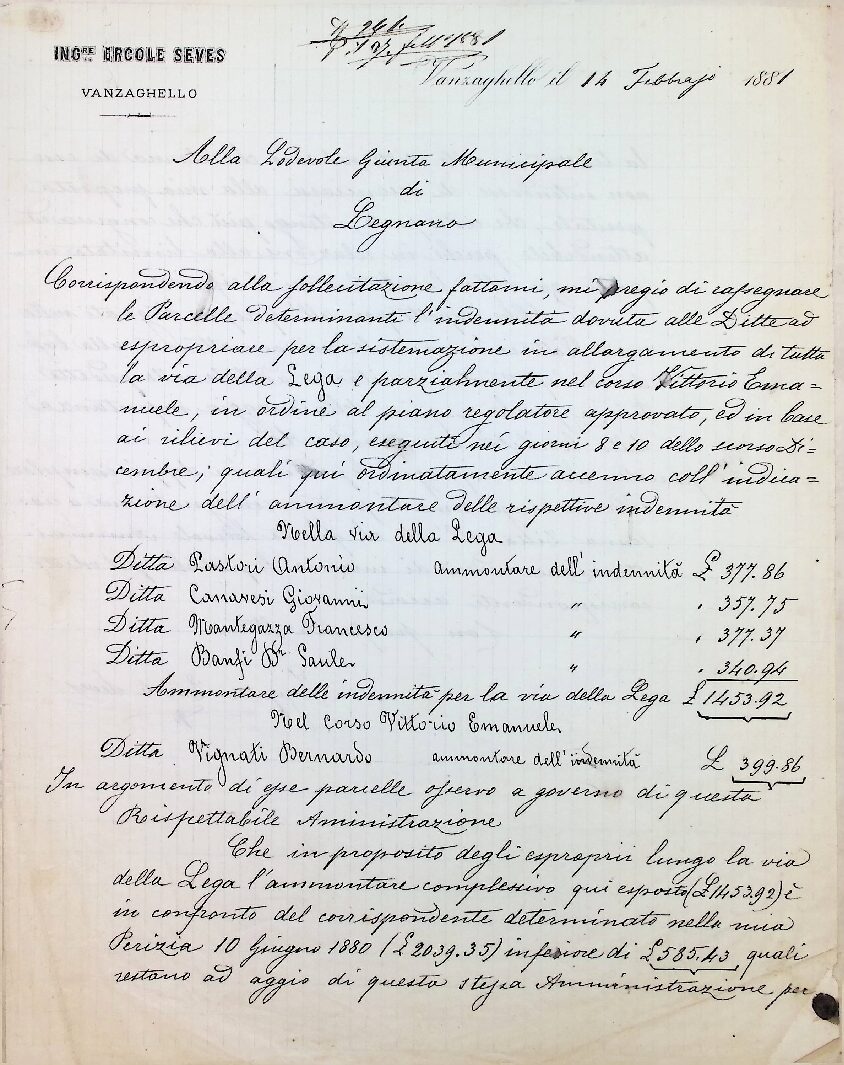 INGRE ERCOLE SEVES
VANZAGHELLO
Vanzaghello il 14 Febbrajo 1881
Alla Lodevole Giunta Municipale
di
Legnano
Corrispondendo alla sollecitazione fattami, mi pregio di rassegnare
le Parcelle determinanti l'indennità dovuta alle Ditte ad
espropriare per la sistemazione in allargamento di tutta
la via della Lega e parzialmente nel corso Vittorio Ema=
nuele, in ordine al piano regolatore approvato, ed in base
ai rilievi del caso, eseguiti nei giorni 8 e 10 dello scorso Di=
cembre; quali qui ordinatamente accenno coll'indica=
zione dell'ammontare delle rispettive indennità
Nella via della Lega
Ditta Pastori Antonio ammontare dell'indennità £ 377.86
Ditta Canavesi Giovanni " " 357.75
Ditta Mantegazza Francesco " " 377.37
Ditta Banfi Dr Saule " " 340.94
Ammontare delle indennità per la via della Lega £ 1453.92
Nel corso Vittorio Emanuele
Ditta Vignati Bernardo ammontare dell'indennità £ 399.86
In argomento di esse parcelle osservo a governo di questa
Rispettabile Aministrazione
Che in proposito degli esproprii lungo la via
della Lega l'ammontare complessivo qui esposto (£1453.92) è
in confronto del corrispondente determinato nella mia
Perizia 10 Giugno 1880 (£2039.35) inferiore di £585.43 quali
restano ad aggio di questa stessa Amministrazione per